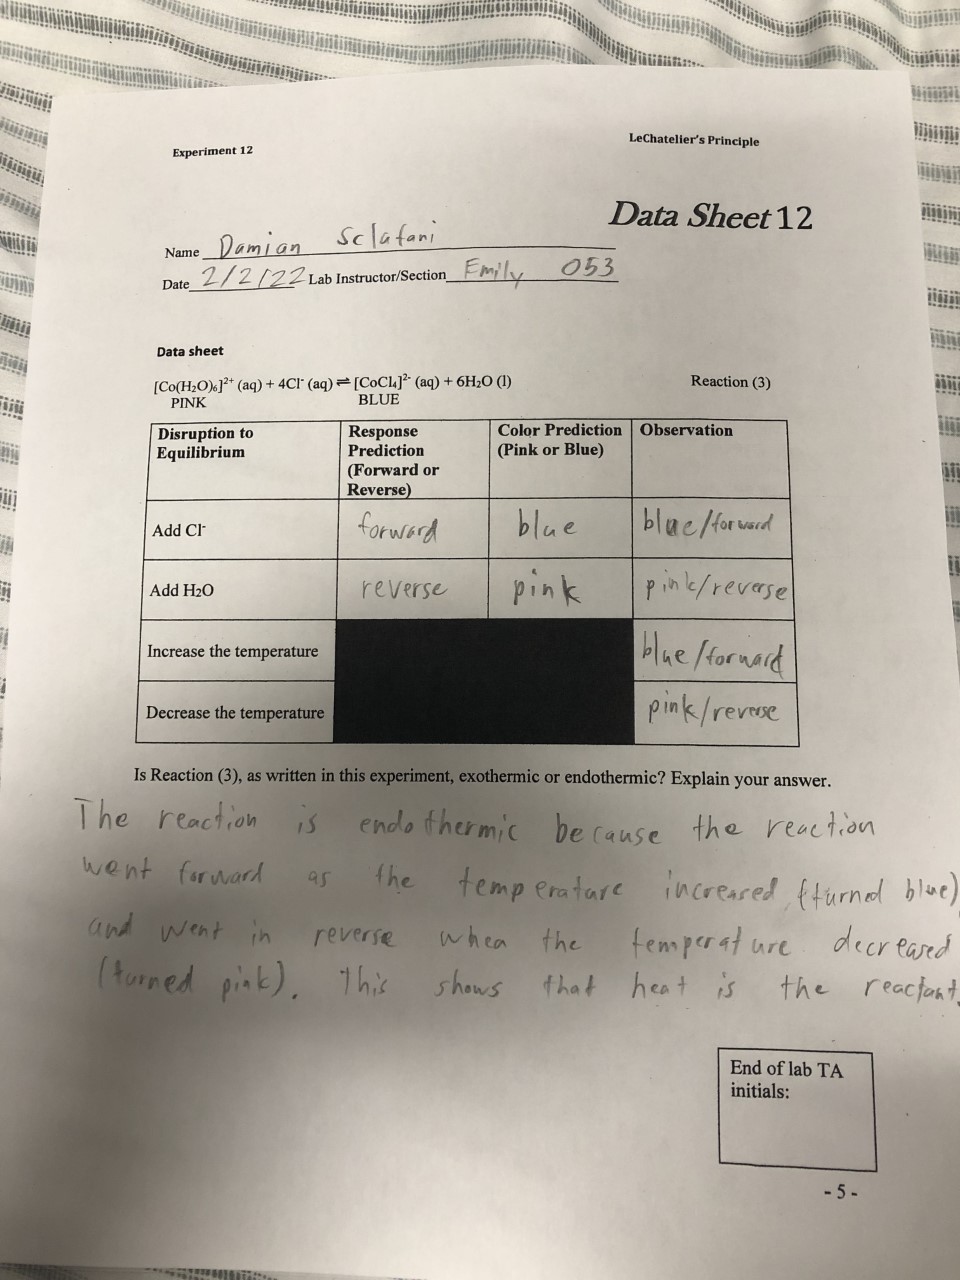 Experiment 12
LeChatelier's Principle
Data Sheet 12
Name Damian Sclafani
Date 2/2/22 Lab Instructor/Section Emily 053
Data sheet
[Co(H₂O)₆]²⁺ (aq) + 4Cl⁻ (aq) ⇌ [CoCl₄]²⁻ (aq) + 6H₂O (l) Reaction (3)
PINK BLUE
Disruption to Equilibrium | Response Prediction (Forward or Reverse) | Color Prediction (Pink or Blue) | Observation
Add Cl⁻ forward blue blue/forward
Add H₂O reverse pink pink/reverse
Increase the temperature blue/forward
Decrease the temperature pink/reverse
Is Reaction (3), as written in this experiment, exothermic or endothermic? Explain your answer.
The reaction is endothermic because the reaction
went forward as the temperature increased (turned blue)
and went in reverse when the temperature decreased
(turned pink). This shows that heat is the reactant.
End of lab TA
initials:
- 5 -